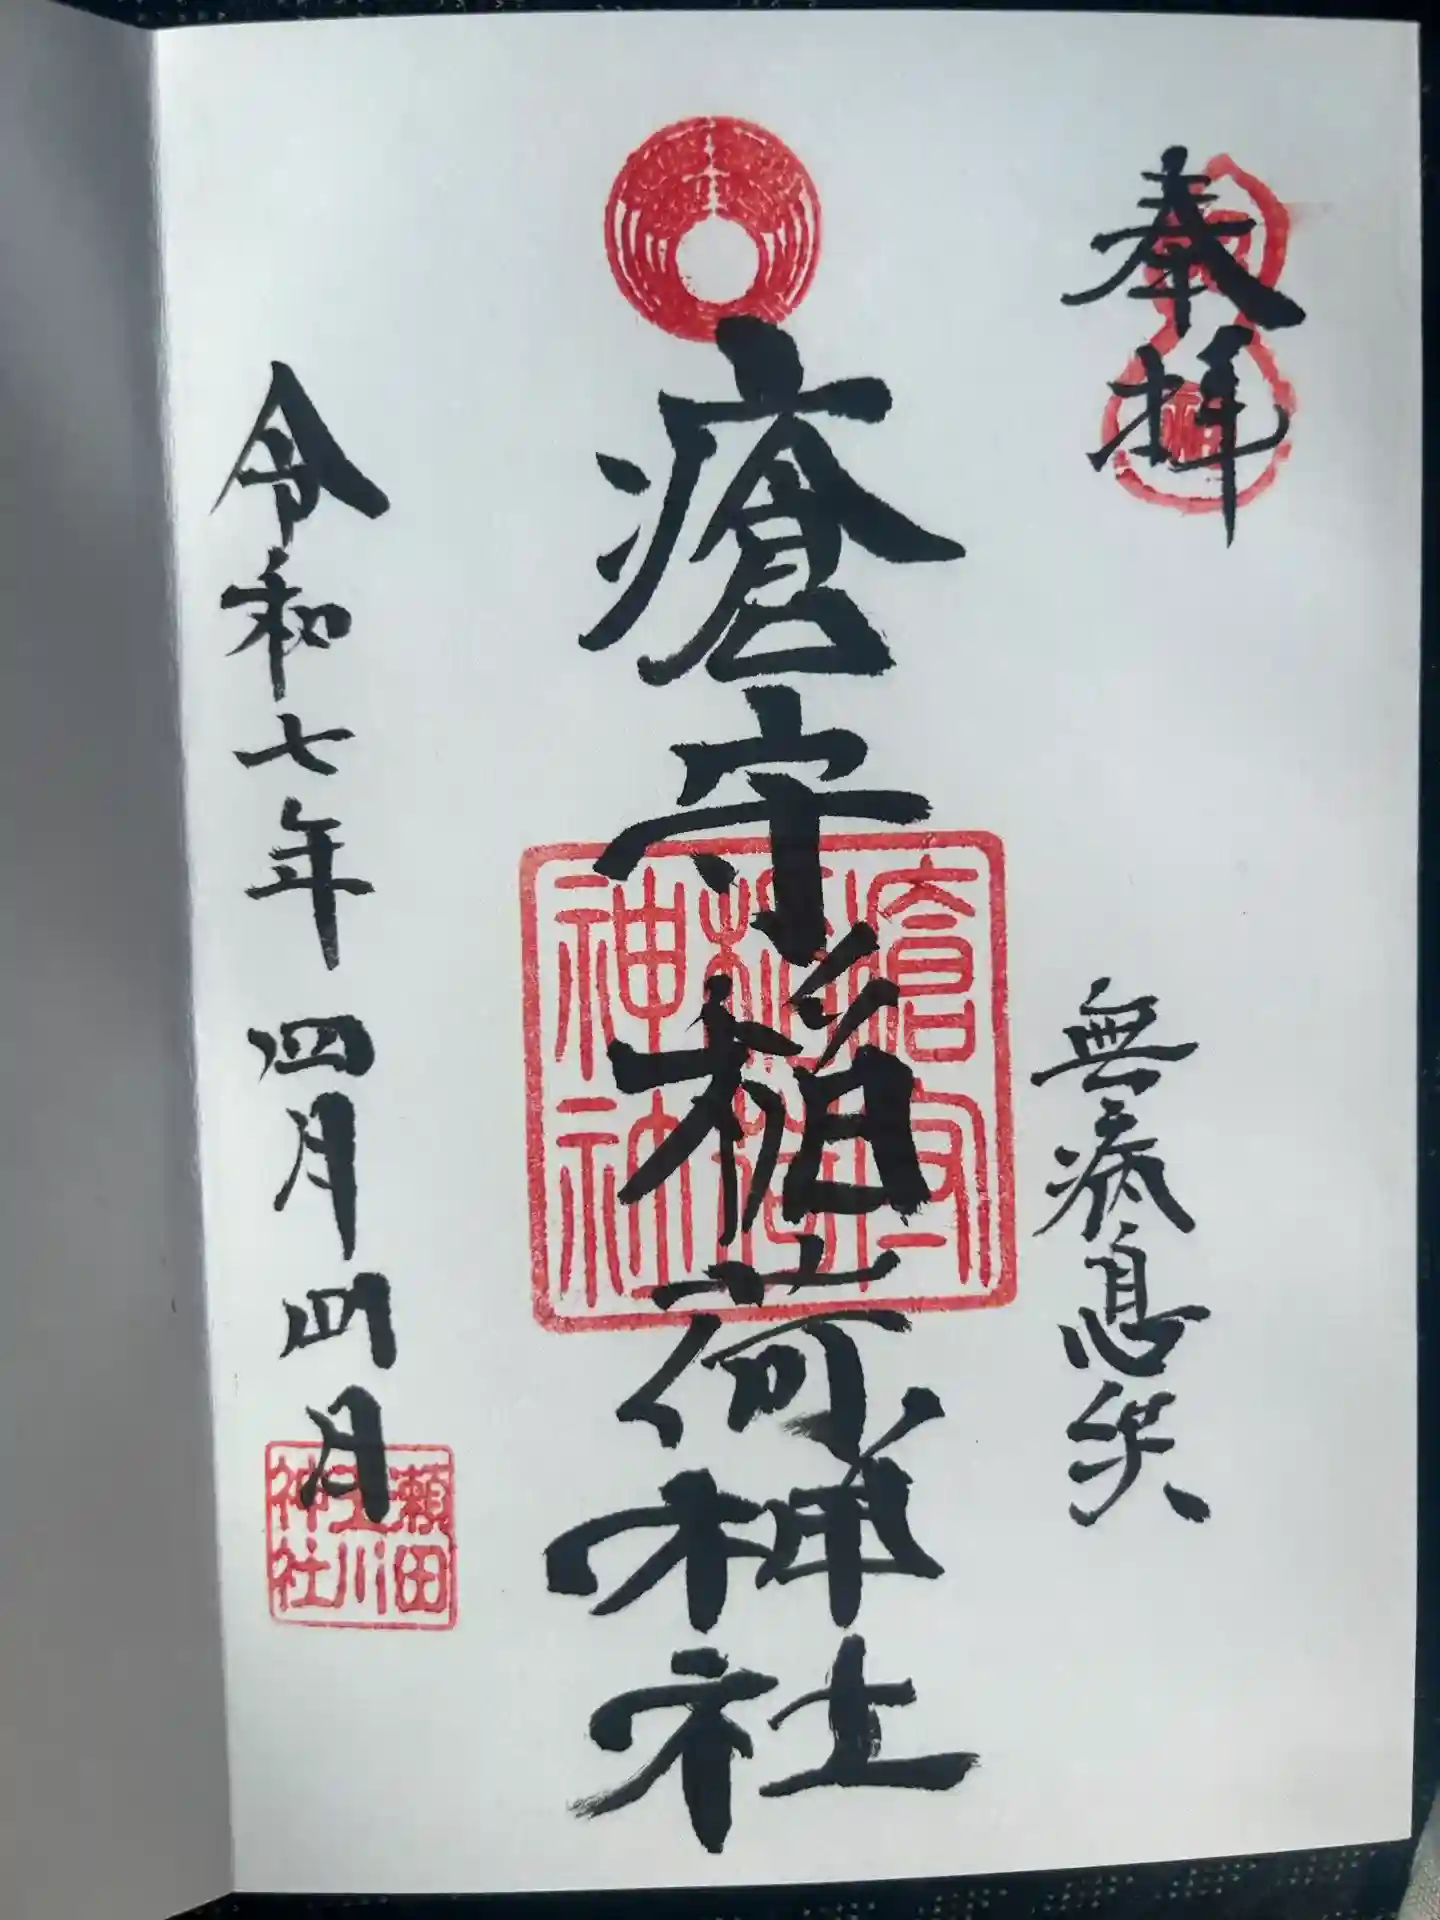 奉拝
無病息災
瘡守稲荷神社
瘡守
稲荷
神社
令和七年 四月四日
瀬田
玉川
神社